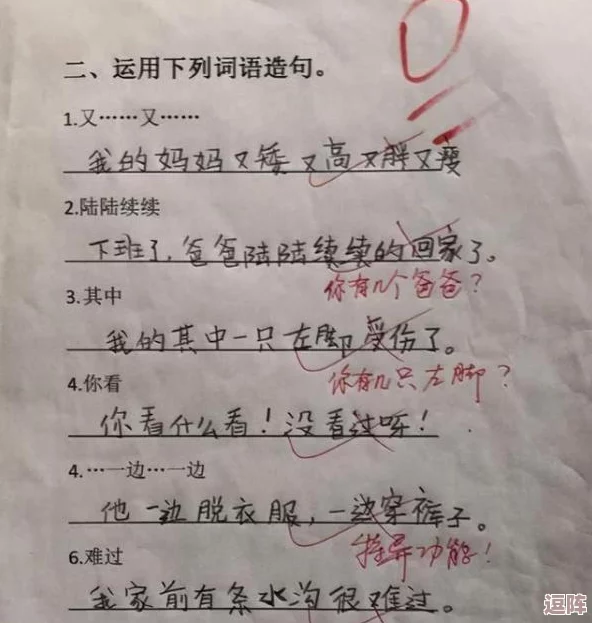 0
二、运用下列词语造句。
1.又……又……
我的妈妈又矮又高又胖又瘦
2.陆陆续续
下班了,爸爸陆陆续续的回家了。
你有几个爸爸?
3.其中
我的其中一只左脚受伤了。
你有几只左脚?
4.你看
你看什么看!没看过呀!
4.…一边…一边
他一边脱衣服,一边穿裤子。
特异功能!
6.难过
我家前有条水沟很难过。
逗阵